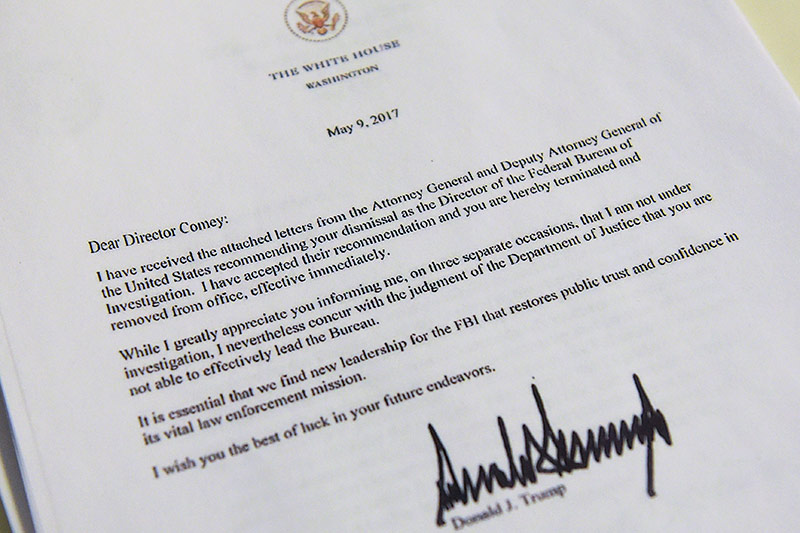 THE WHITE HOUSE
WASHINGTON
May 9, 2017
Dear Director Comey:
I have received the attached letters from the Attorney General and Deputy Attorney General of
the United States recommending your dismissal as the Director of the Federal Bureau of
Investigation. I have accepted their recommendation and you are hereby terminated and
removed from office, effective immediately.
While I greatly appreciate you informing me, on three separate occasions, that I am not under
investigation, I nevertheless concur with the judgment of the Department of Justice that you are
not able to effectively lead the Bureau.
It is essential that we find new leadership for the FBI that restores public trust and confidence in
its vital law enforcement mission.
I wish you the best of luck in your future endeavors.
Donald J. Trump